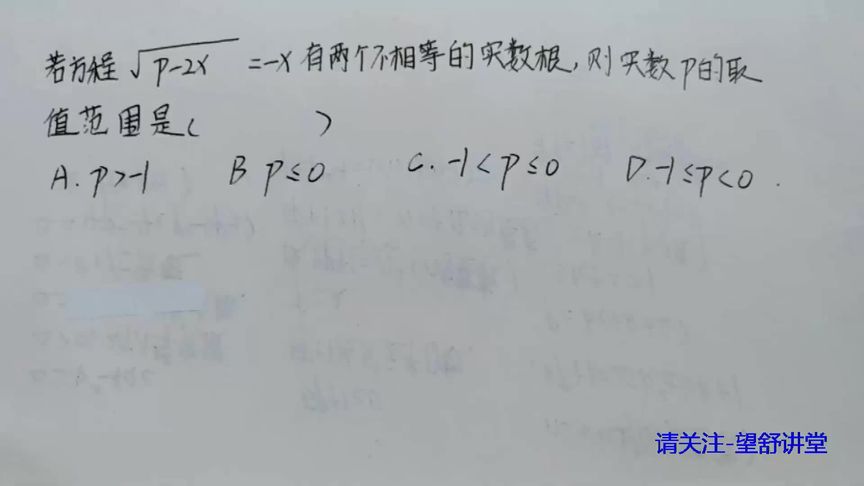 若方程√(p-2x) =-x有两个不相等的实数根,则实数p的取
值范围是( )
A. p>-1 B p≤0 C. -1<p≤0 D. -1≤p<0.
请关注-望舒讲堂